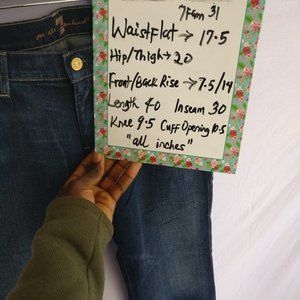 for all mankind
7Fam 31
Waistflat → 17.5
Hip/Thigh → 20
Front/Back Rise → 7.5/14
Length 40 Inseam 30
Knee 9.5 Cuff Opening 10.5
"all inches"